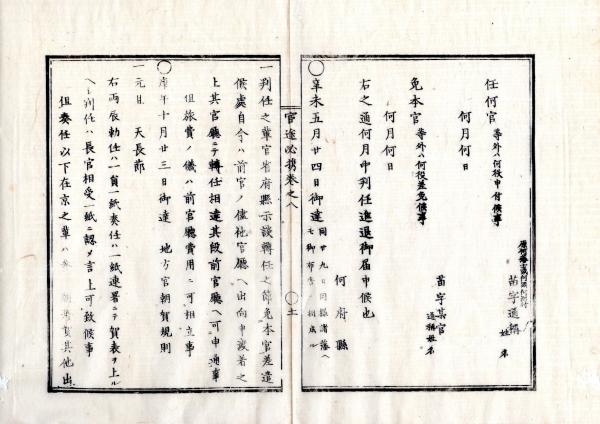 任何官 等外ハ何役申付候事
何月何日
苗字通稱 姓名
免本官 等外ハ何役差免候事
何月何日
苗字某官 通稱姓名
右之通何月中判任進退御届申候也
何府縣
○辛未五月廿四日御達
官途必携巻之八
○十一
一判任之輩官省府縣示談轉任之節免本官差遣
候處自今ハ前官ノ儘他官廳ヘ出向申渡着之
上其官廳ニテ轉任相達其段前官廳ヘ可申通事
但旅費ノ儀ハ前官廳費用ニ可相立事
○庚午十月廿三日御達 地方官朝賀規則
一元旦 天長節
右両辰勅任ハ一員一紙奏任ハ一紙連署ニテ賀表ヲ上ル
ヘシ判任ハ長官相受一紙ニ認メ言上可致候事
但奏任以下在京之輩ハ